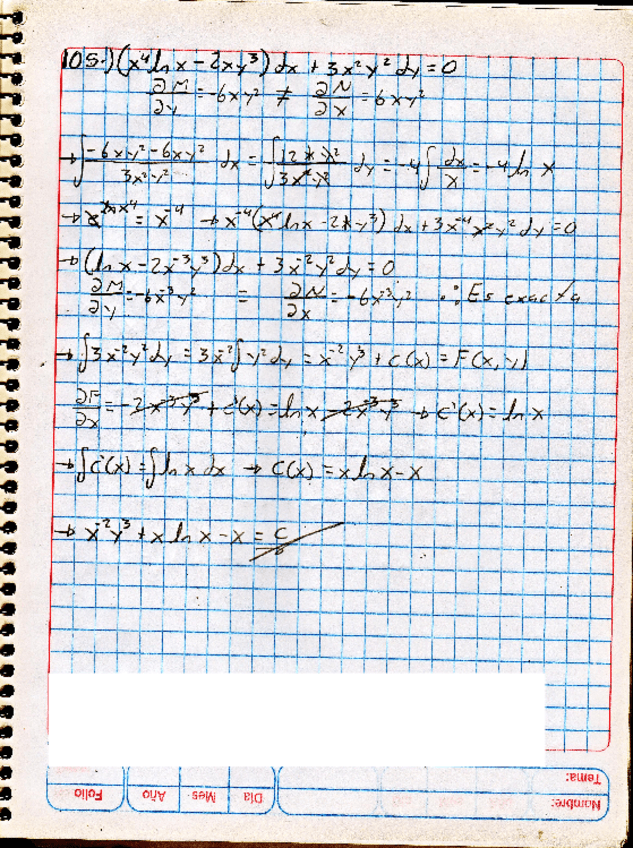 105.) (x⁴ ln x - 2xy³) dx + 3x²y² dy = 0
∂M/∂y = -6xy² ≠ ∂N/∂x = 6xy²
→ ∫ (-6xy² - 6xy²)/(3x²y²) dx = ∫ 12xy²/(3x²y²) dy = -4∫ dx/x = -4 ln x
→ e^(ln x⁻⁴) = x⁻⁴ → x⁻⁴(x⁴ ln x - 2xy³) dx + 3x⁻⁴x²y² dy = 0
→ (ln x - 2x⁻³y³) dx + 3x⁻²y² dy = 0
∂M/∂y = -6x⁻³y² = ∂N/∂x = -6x⁻³y² ∴ Es exacta
→ ∫3x⁻²y² dy = 3x⁻²∫y² dy = x⁻²y³ + c(x) = F(x,y)
∂F/∂x = -2x⁻³y³ + c'(x) = ln x - 2x⁻³y³ → c'(x) = ln x
→ ∫c'(x) = ∫ln x dx → C(x) = x ln x - x
→ x⁻²y³ + x ln x - x = C
Folio
Año
Mes
Día
Tema:
Nombre: